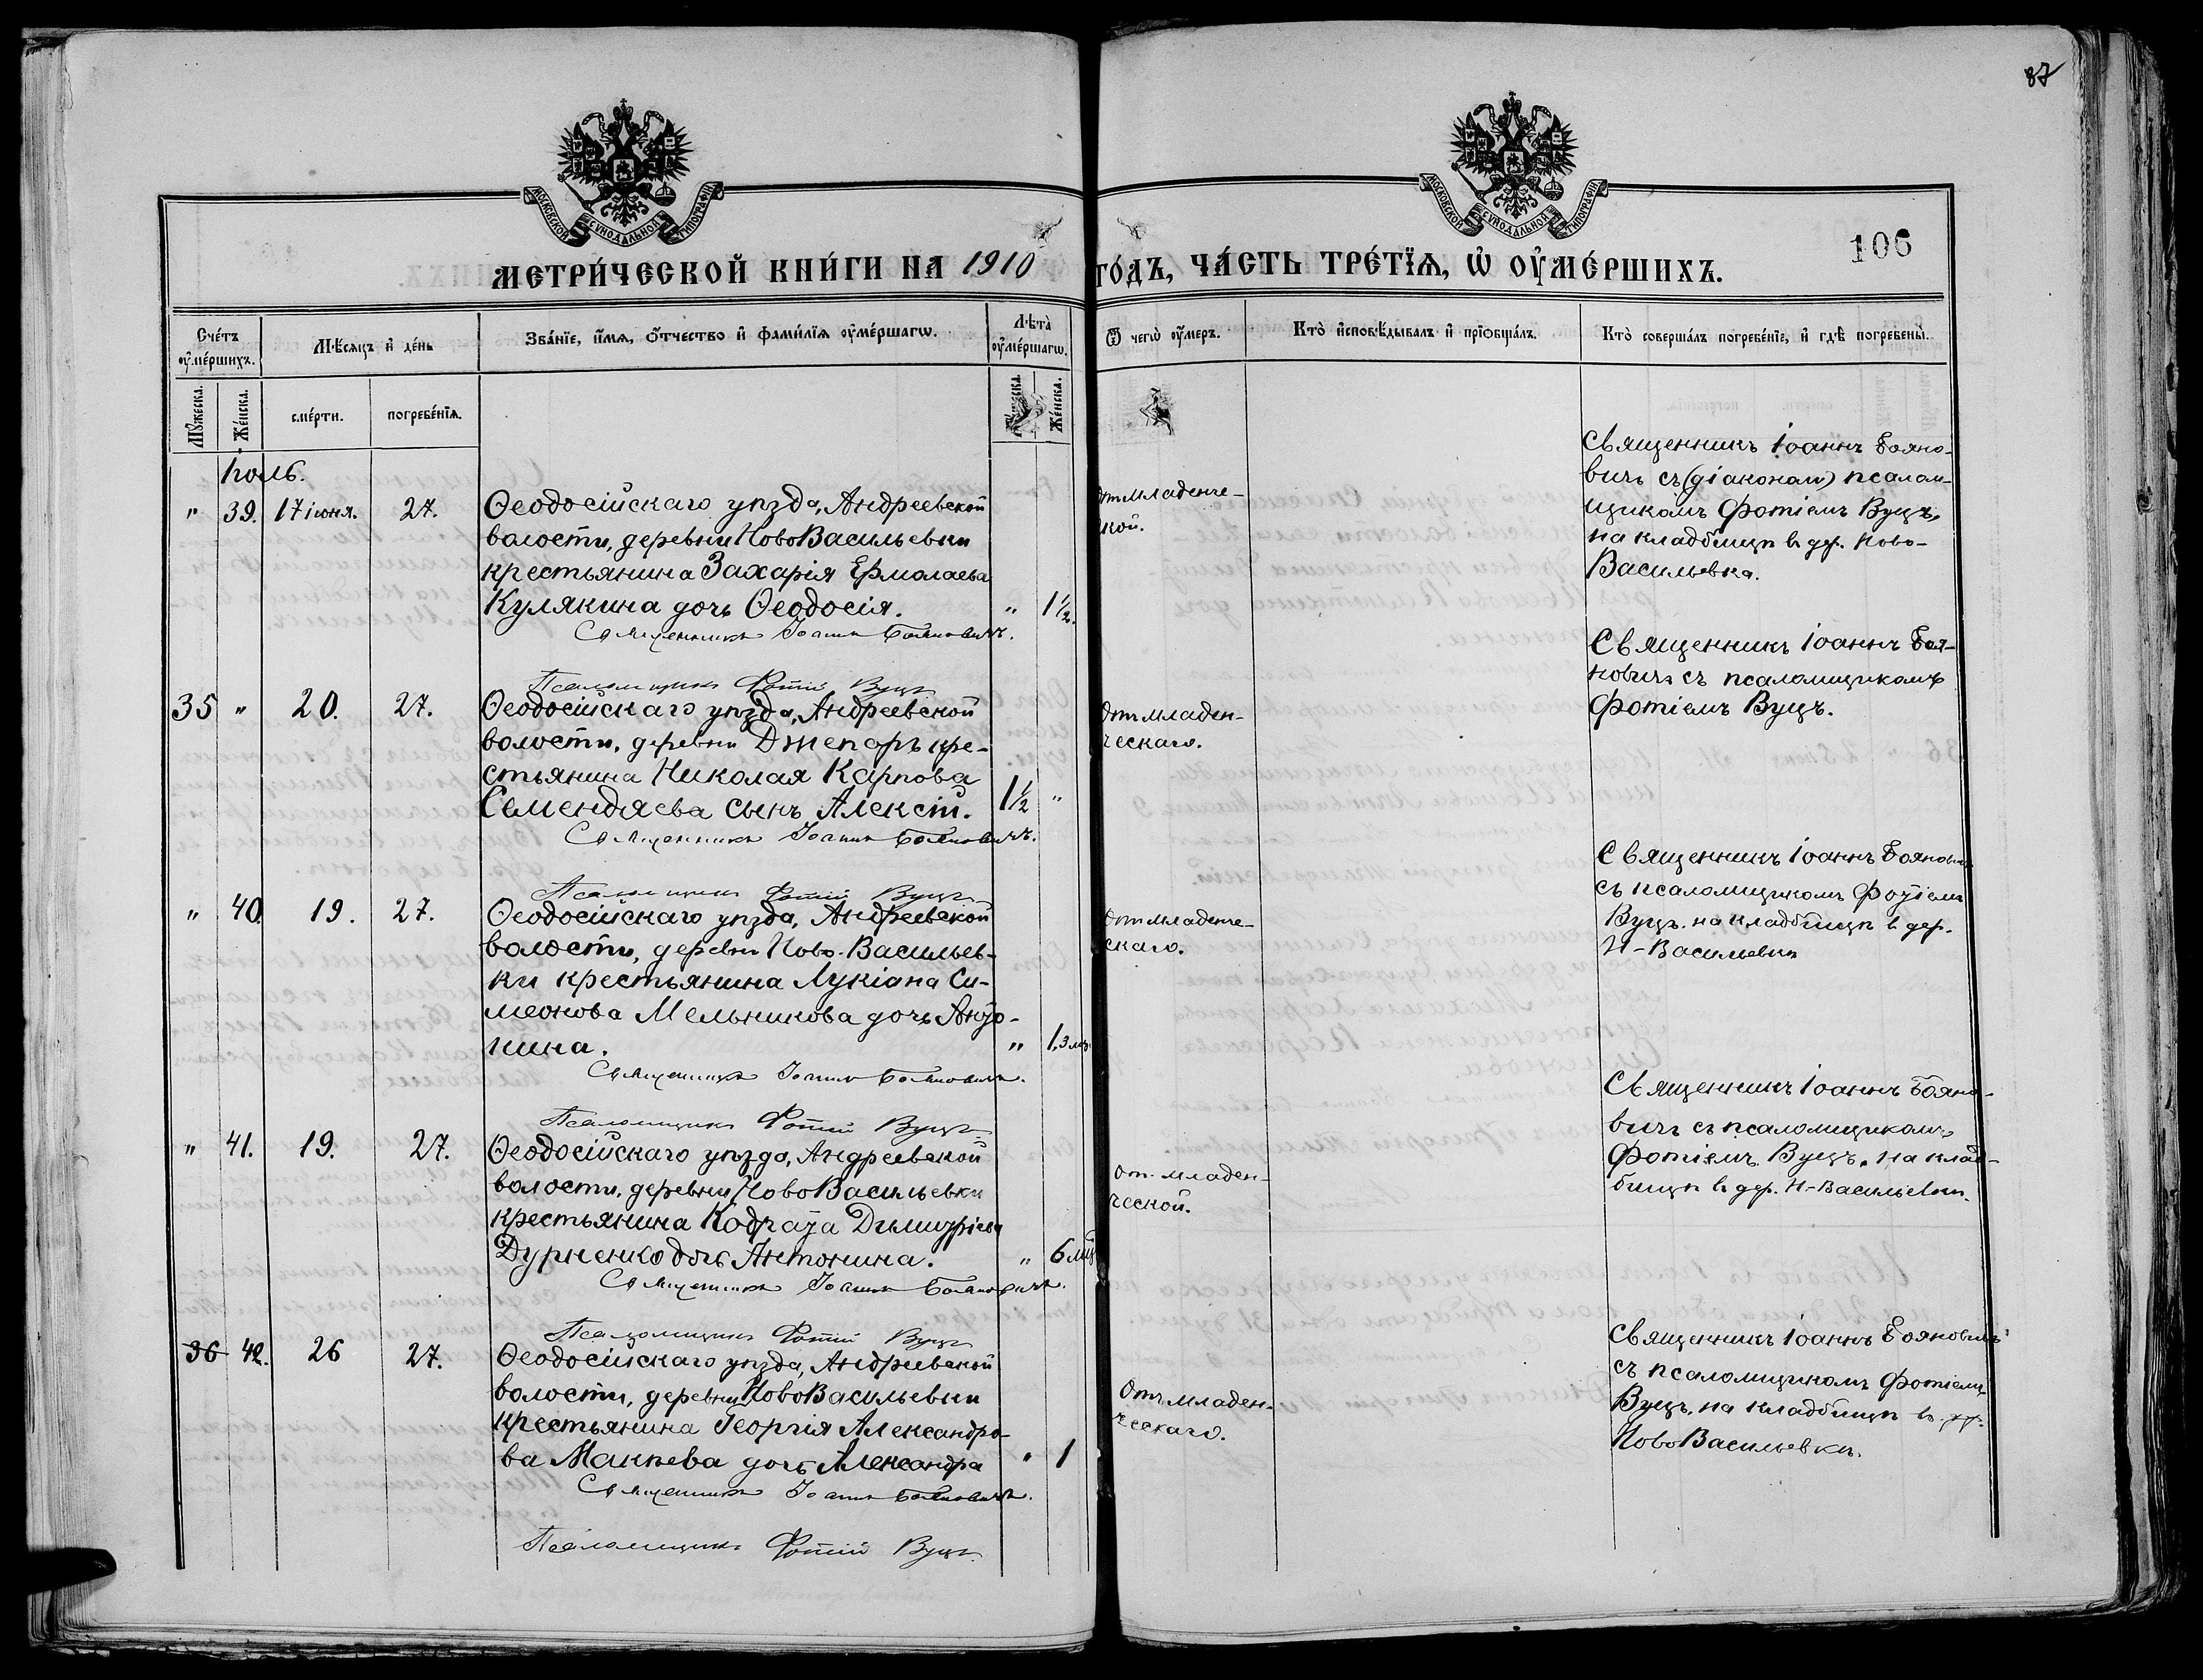 87
МОСКОВСКОЙ СУНОДАЛЬНОЙ ТИПОГРАФІИ
МОСКОВСКОЙ СУНОДАЛЬНОЙ ТИПОГРАФІИ
106
МЕТРИ́ЧЕСКОЙ КНИ́ГИ НА 1910 ГО́ДЪ, ЧА́СТЬ ТРЕ́ТЇѦ, Ѡ҆ ОУ҆МЕ́РШИХЪ.
Сче́тъ оу҆ме́ршихъ.
Мѣ́сѧцъ и҆ де́нь
Зва́нїе, и҆́мѧ, ѻ҆́тчество и҆ фами́лїѧ оу҆ме́ршагѡ.
Лѣ́та̀ оу҆ме́ршагѡ.
Ѿ чегѡ̀ оу҆́меръ.
Кто̀ и҆сповѣ́дывалъ и҆ прїѡбща́лъ.
Кто̀ соверша́лъ погребе́нїе, и҆ гдѣ̀ погребены̀.
Мꙋ́жеска.
Же́нска.
сме́рти.
погребе́нїѧ.
Же́нска.
Іюль.
" 39. 17 іюня. 27.
Ѳеодосійскаго уѣзда, Андреевской
волости, деревни НовоВасильевки
крестьянина Захарія Ермолаева
Кулякина дочь Ѳеодосія. " 1 1/2.
Священникъ Іоаннъ Бояновичъ.
Псаломщикъ Фотій Вуцъ
От младенче-
кой.
Священникъ Іоаннъ Бояно-
вичъ съ (діаконом) псалом-
щикомъ Фотіемъ Вуцъ,
на кладбищѣ в дер. Ново-
Васильевка.
35 " 20. 27.
Ѳеодосійскаго уѣзда, Андреевской
волости, деревни Джепаръ кре-
стьянина Николая Карпова
Семендяева сынъ Алексій. 1 1/2 "
Священникъ Іоаннъ Бояновичъ.
Псаломщикъ Фотій Вуцъ
От младен-
ческаго.
Священникъ Іоаннъ Боя-
новичъ съ псаломщикомъ
Фотіемъ Вуцъ.
" 40. 19. 27.
Ѳеодосійскаго уѣзда, Андреевской
волости, деревни Ново-Васильев-
ки крестьянина Лукіана Си-
меонова Мельникова дочь Анто-
нина. " 1, 3 мѣ.
Священникъ Іоаннъ Бояновичъ.
Псаломщикъ Фотій Вуцъ
От младенче-
скаго.
Священникъ Іоаннъ Бояновичъ
съ псаломщикомъ Фотіемъ
Вуцъ. на кладбищѣ в дер.
Н-Васильевки
" 41. 19. 27.
Ѳеодосійскаго уѣзда, Андреевской
волости, деревни НовоВасильевки
крестьянина Кодрата Димитріева
Дурненко дочь Антонина. " 6 мѣ
Священникъ Іоаннъ Бояновичъ.
Псаломщикъ Фотій Вуцъ
От младен-
ческой.
Священникъ Іоаннъ Бояно-
вичъ съ псаломщикомъ
Фотіемъ Вуцъ. на клад-
бищѣ в дер. Н-Васильевки.
36 42. 26 27.
Ѳеодосійскаго уѣзда, Андреевской
волости, деревни НовоВасильевки
крестьянина Георгія Александро-
ва Макѣева дочь Александра " 1
Священникъ Іоаннъ Бояновичъ.
Псаломщикъ Фотій Вуцъ.
Отъ младен-
ческаго.
Священникъ Іоаннъ Бояновичъ
съ псаломщикомъ Фотіемъ
Вуцъ, на кладбищѣ в. др.
НовоВасильевкѣ.